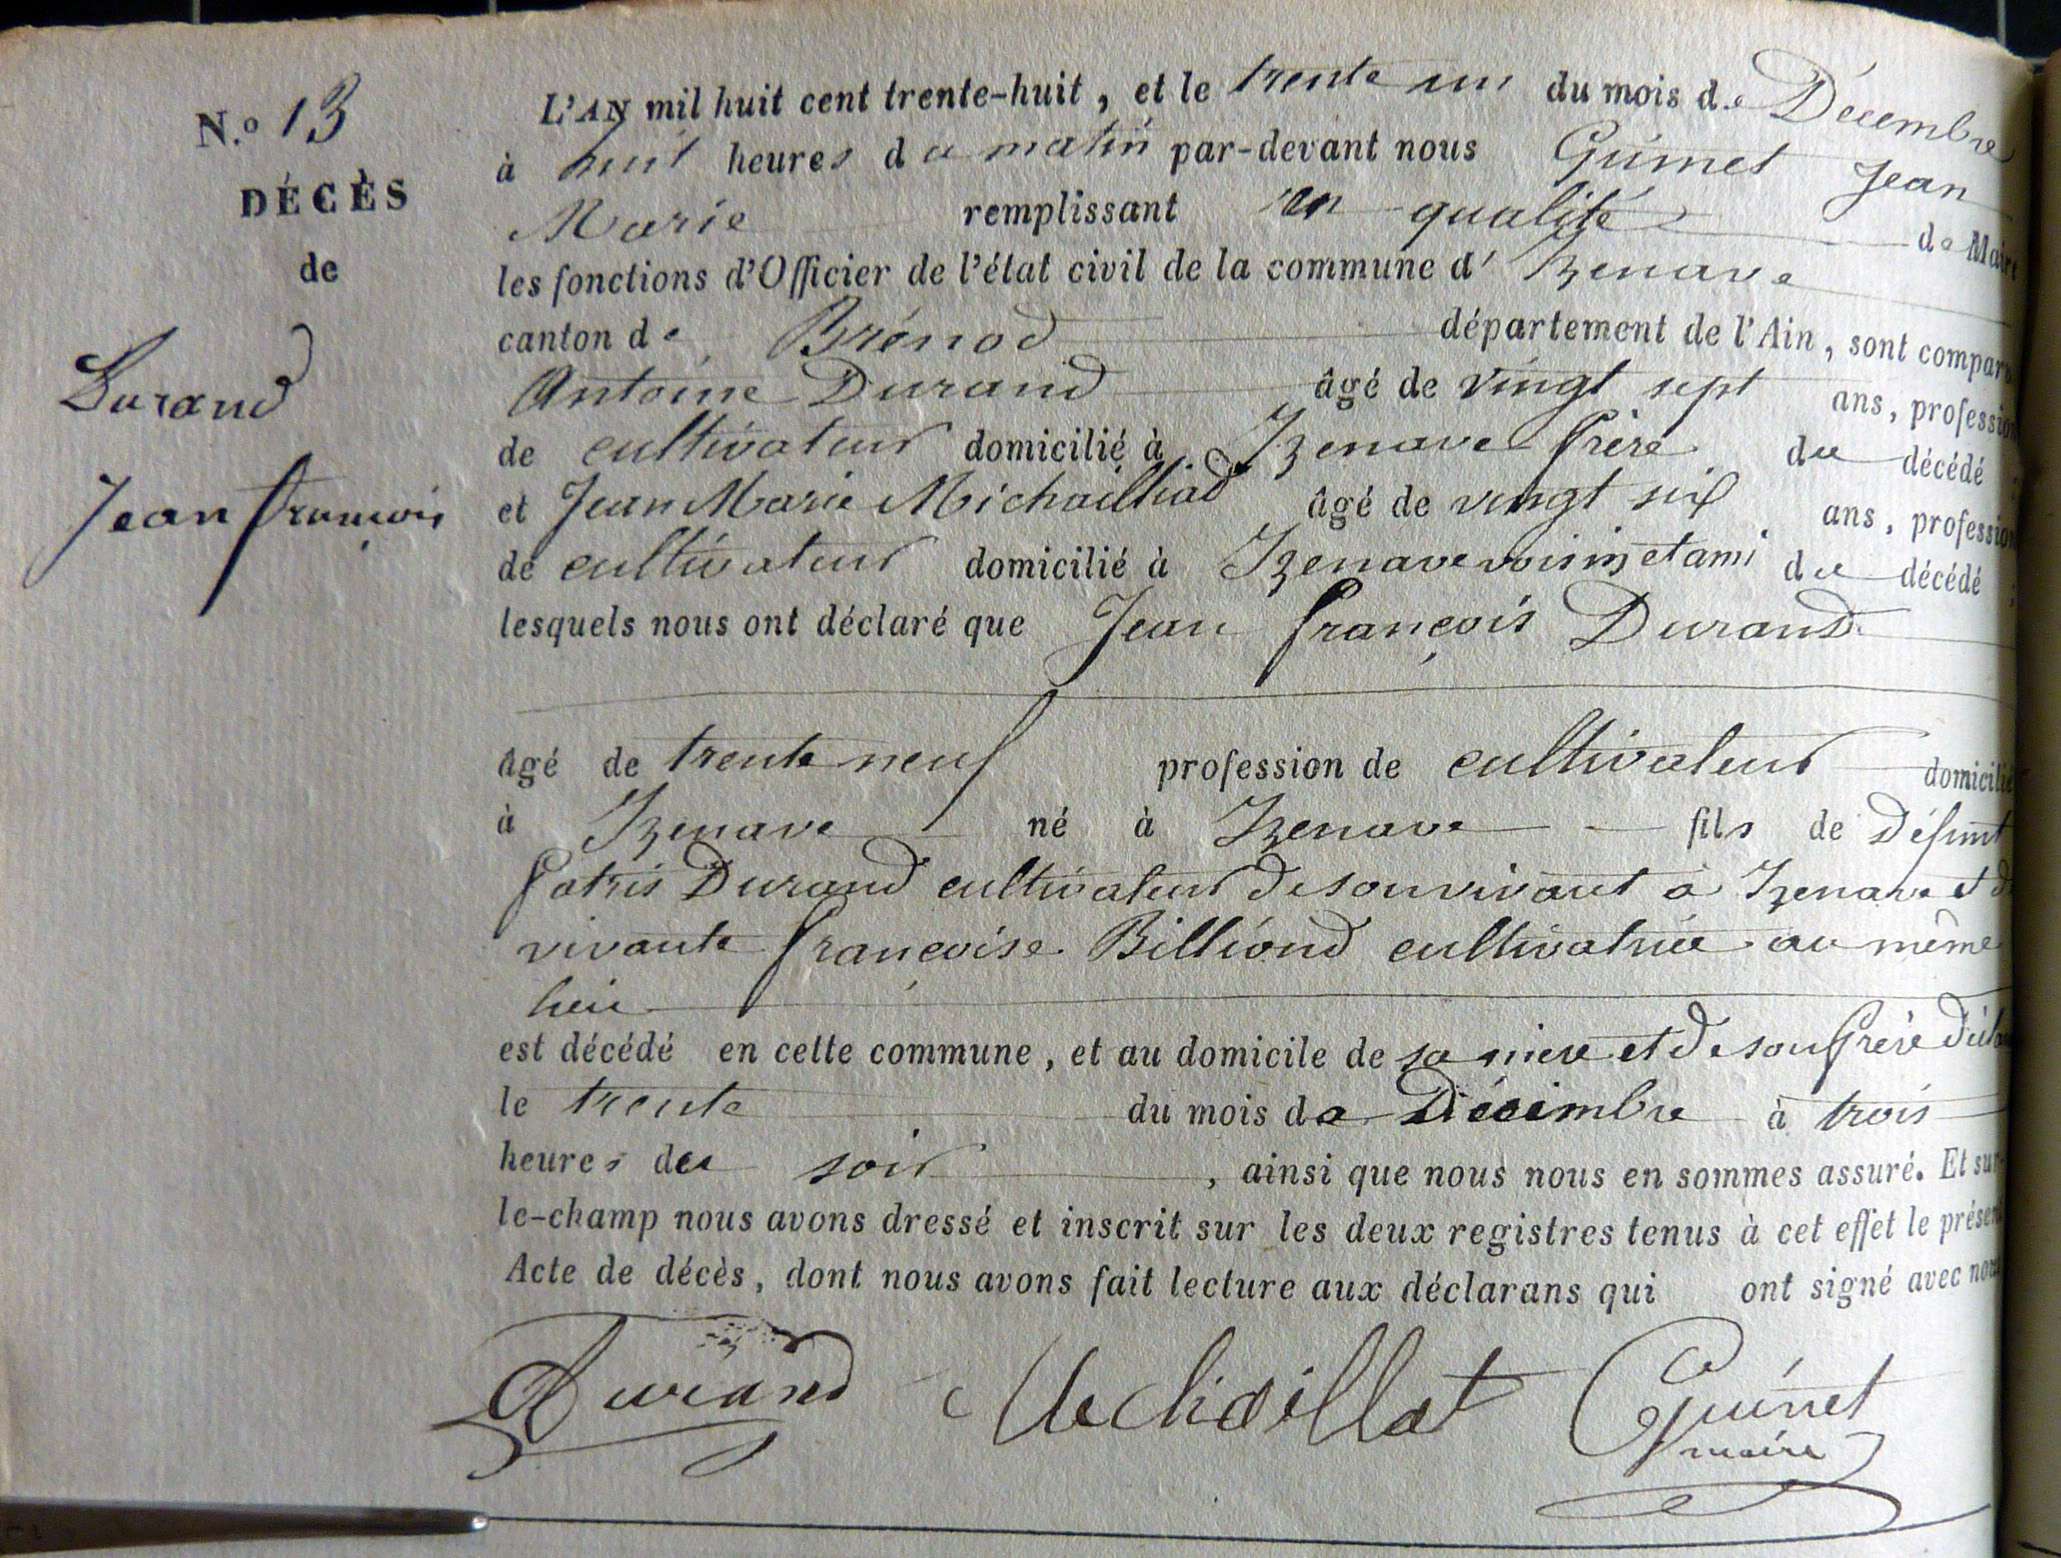 N.º 13
DÉCÈS
de
Durand
Jean françois
L'AN mil huit cent trente-huit, et le trente un du mois de Décembre
à huit heures du matin par-devant nous Guinet Jean
Marie remplissant en qualité de Maire
les fonctions d'Officier de l'état civil de la commune d' Izenave
canton de Brénod département de l'Ain, sont comparu
Antoine Durand âgé de vingt sept ans, profession
de cultivateur domicilié à Izenave frère du décédé ;
et Jean Marie Michailliad âgé de vingt six ans, profession
de cultivateur domicilié à Izenave voisin et ami du décédé ;
lesquels nous ont déclaré que Jean françois Durand
âgé de trente neuf profession de cultivateur domicilié
à Izenave né à Izenave fils de Défunt
Patris Durand cultivateur de son vivant à Izenave et de
vivante françoise Billiond cultivatrice au même
lieu
est décédé en cette commune, et au domicile de sa mere et de son frère
le trente du mois de Décembre à trois
heures du soir , ainsi que nous nous en sommes assuré. Et sur-
le-champ nous avons dressé et inscrit sur les deux registres tenus à cet effet le présent
Acte de décès, dont nous avons fait lecture aux déclarans qui ont signé avec nous
Durand Michaillat Guinet
maire